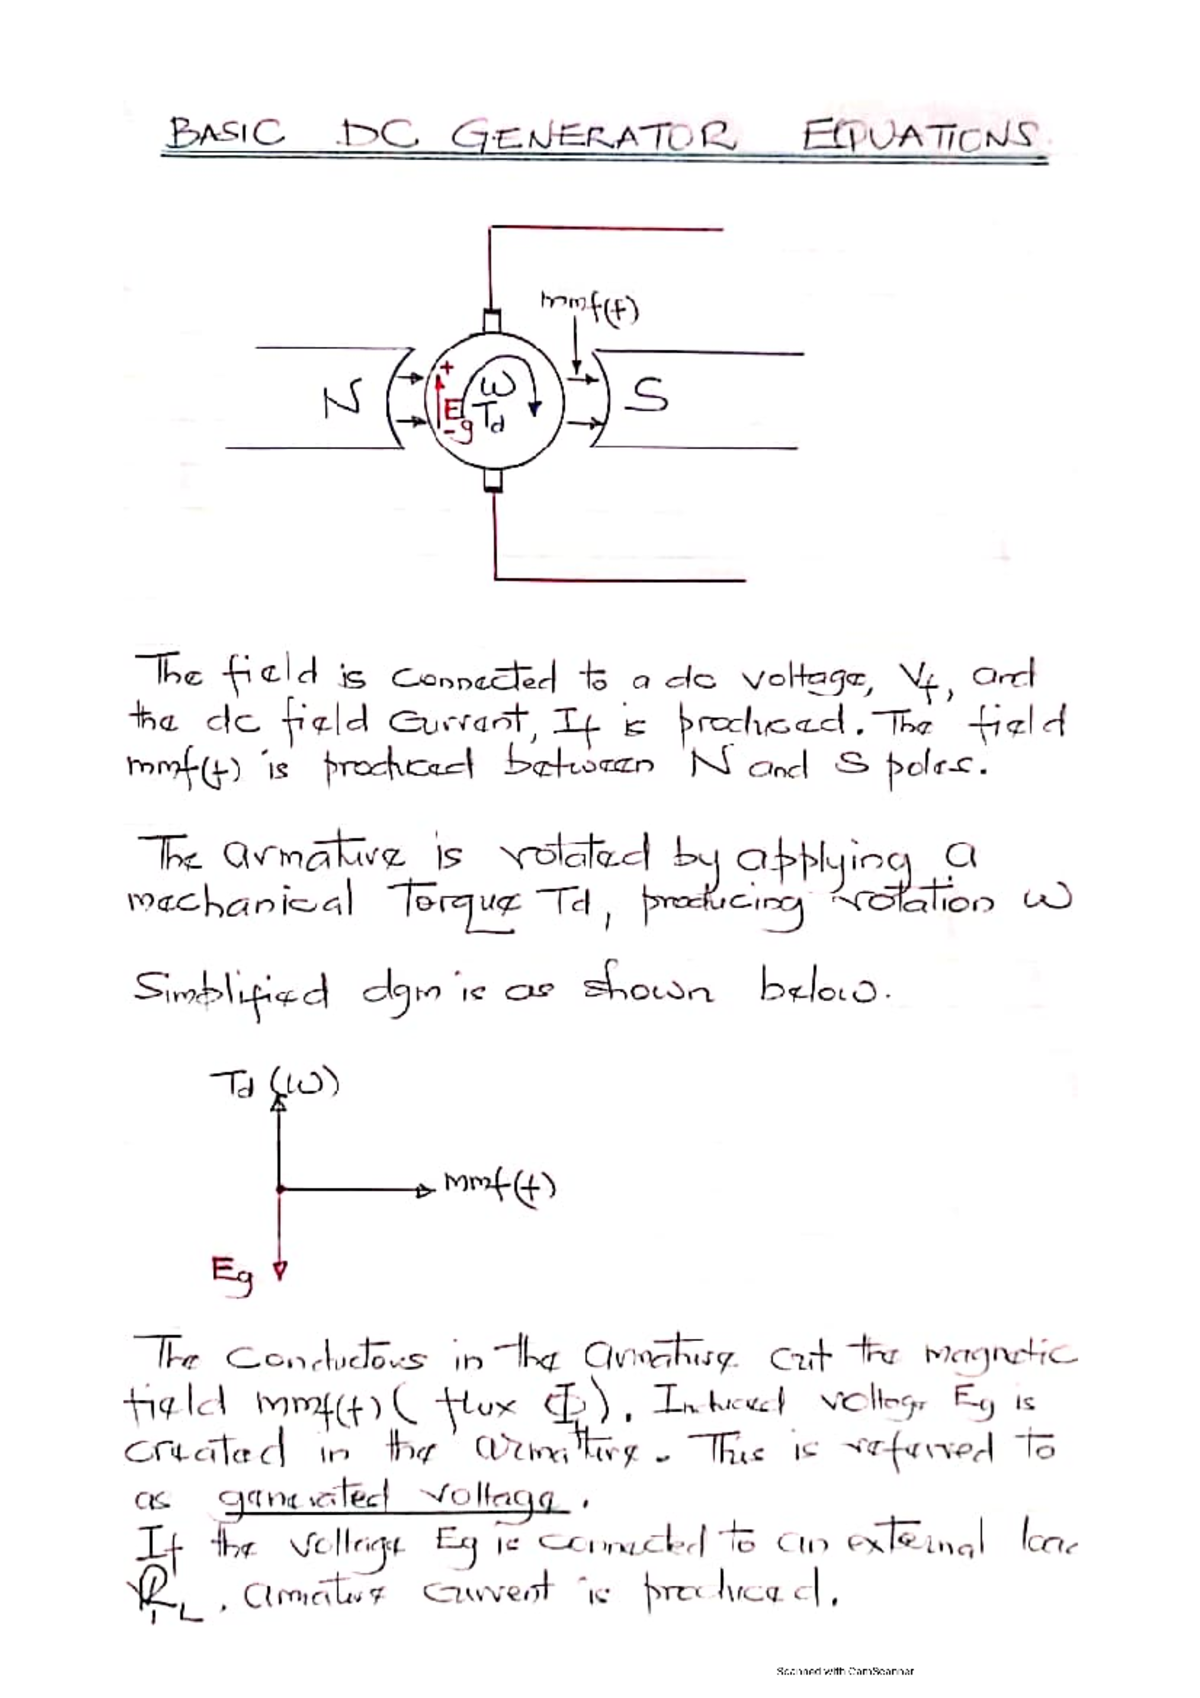 BASIC DC GENERATOR EQUATIONS
mmf(f)
+
N
ω
S
Eg
Td
-
The field is connected to a dc voltage, Vf, and
the dc field current, If is produced. The field
mmf(f) is produced between N and S poles.
The armature is rotated by applying a
mechanical Torque Td, producing rotation ω
Simplified dgm is as shown below.
Td (ω)
mmf(f)
Eg
The conductors in the armature cut the magnetic
field mmf(f) ( flux Φ). Induced voltage Eg is
created in the armature. This is referred to
as generated voltage.
If the voltage Eg is connected to an external loac
RL, armature current is produced.
Scanned with CamScanner